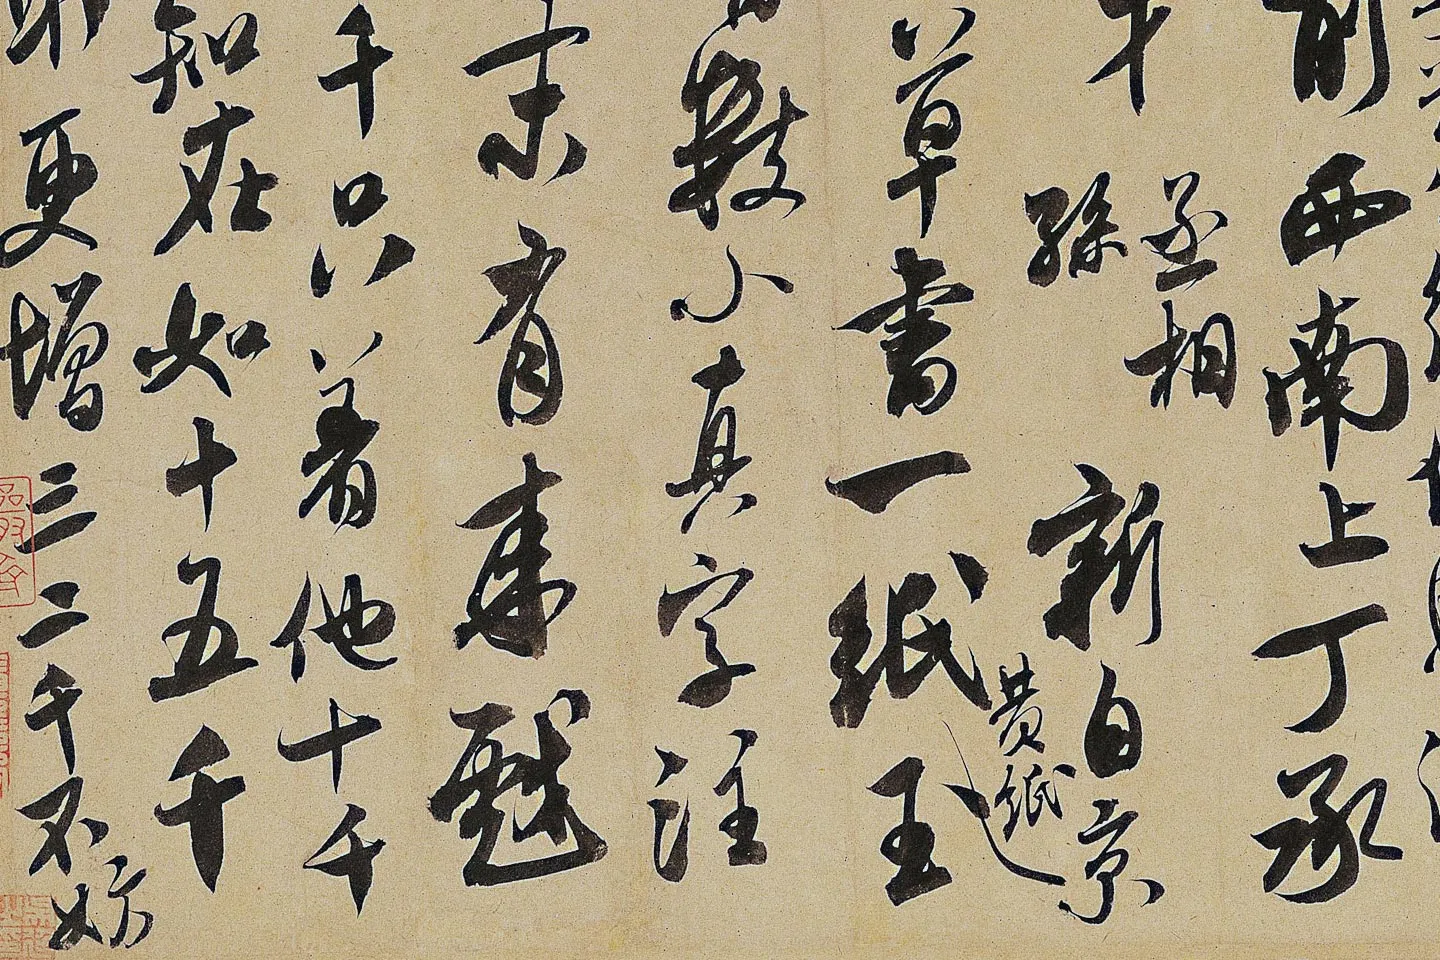 前西南上丁承
才丞相
孫新自京
黄紙
草書一紙王
數小真字注
末有来戲
千只著他十千
知在如十五千
耶更增三二千不妨